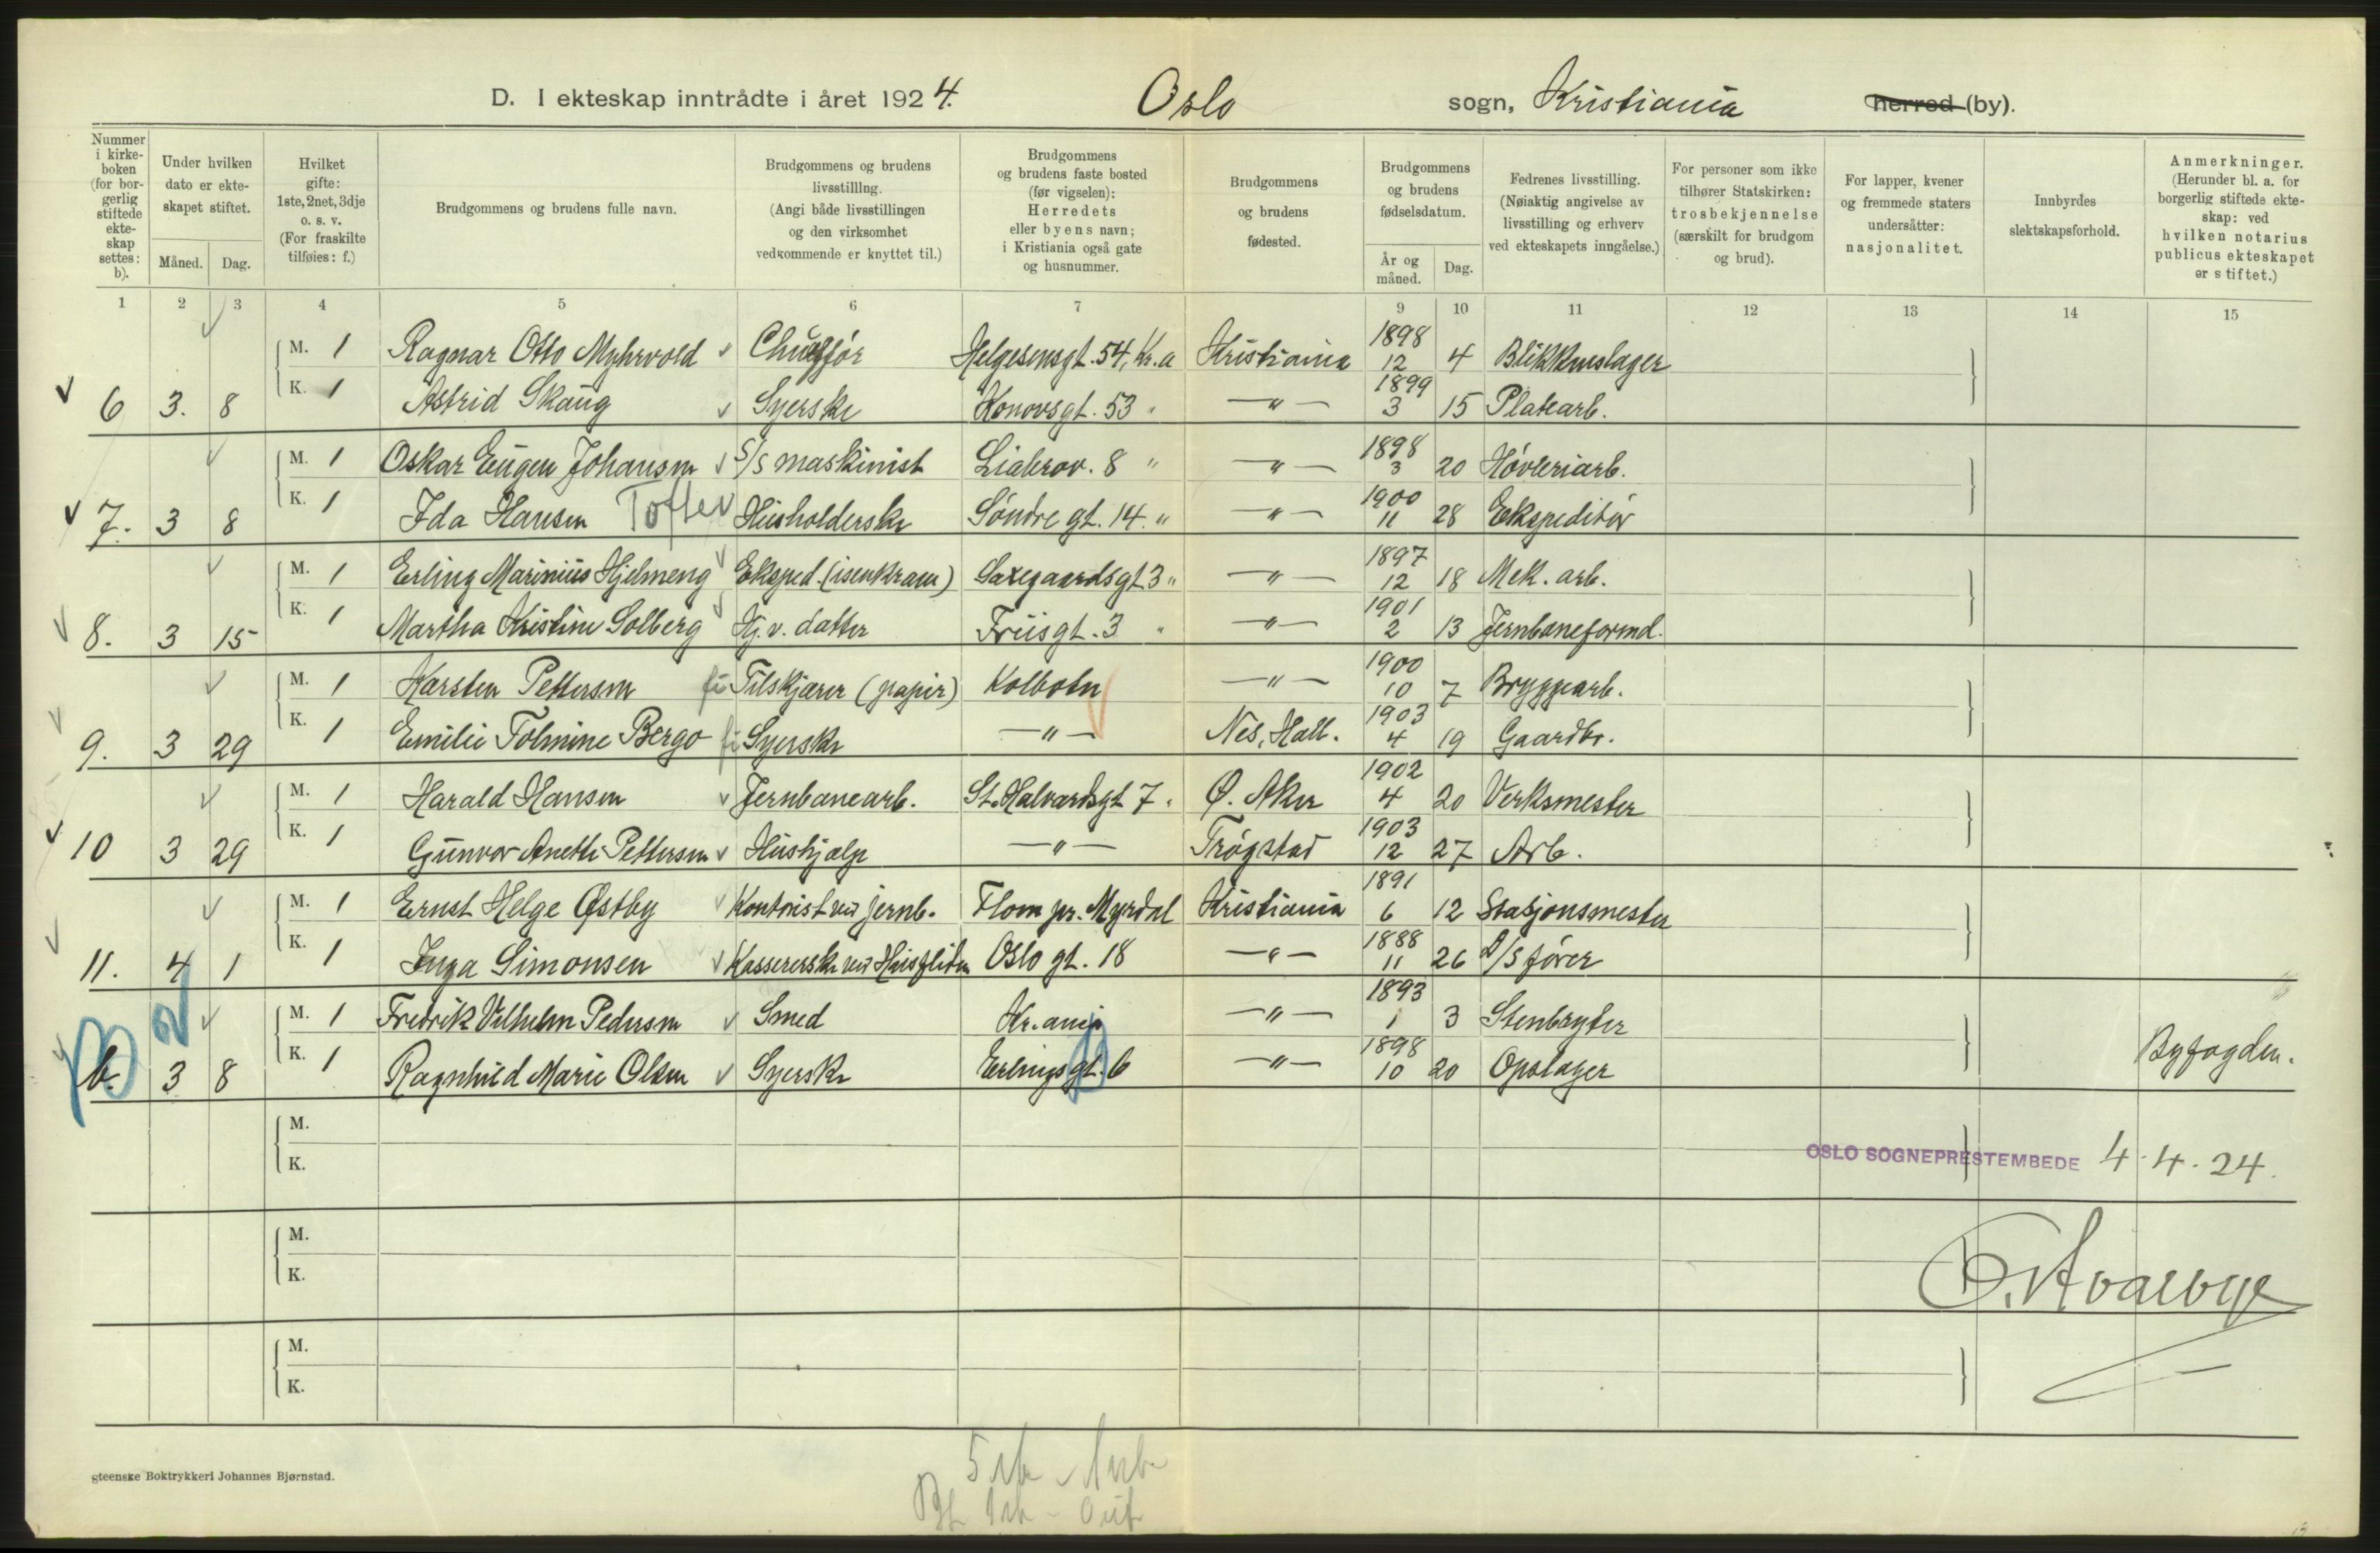 D. I ekteskap inntrådte i året 1924. Oslo sogn, Kristiania herred (by).
Nummer i kirke- boken (for bor- gerlig stiftede ekte- skap settes: b).
Under hvilken dato er ekte- skapet stiftet.
Måned. Dag.
Hvilket gifte: 1ste, 2net, 3dje o. s. v. (For fraskilte tilføies: f.)
Brudgommens og brudens fulle navn.
Brudgommens og brudens livsstilling. (Angi både livsstillingen og den virksomhet vedkommende er knyttet til.)
Brudgommens og brudens faste bosted (før vigselen): Herredets eller byens navn; i Kristiania også gate og husnummer.
Brudgommens og brudens fødested.
Brudgommens og brudens fødselsdatum.
År og måned. Dag.
Fedrenes livsstilling. (Nøiaktig angivelse av livsstilling og erhverv ved ekteskapets inngåelse.)
For personer som ikke tilhører Statskirken: trosbekjennelse (særskilt for brudgom og brud).
For lapper, kvener og fremmede staters undersåtter: nasjonalitet.
Innbyrdes slektskapsforhold.
Anmerkninger. (Herunder bl. a. for borgerlig stiftede ekte- skap: ved hvilken notarius publicus ekteskapet er stiftet.)
1 2 3 4 5 6 7 9 10 11 12 13 14 15
M. 1 Ragnar Otto Myhrvold Chuffør Helgesensgt. 54, Kr.a Kristiania 1898 12 4 Blikkenslager
6 3. 8 K. 1 Astrid Skaug Syerske Konowsgt. 53 " —"— 1899 3 15 Platearb.
M. 1 Oskar Eugen Johansen S/S maskinist Liabrov. 8 " —"— 1898 3 20 Høvleriarb.
7. 3 8 K. 1 Ida Hansen Tofte Husholderske Søndre gt. 14. " —"— 1900 11 28 Ekspeditør
M. 1 Erling Marinius Hjelmeng Eksped. (isenkram) Saxegaardsgt 3 " —"— 1897 12 18 Mek. arb.
8. 3 15 K. 1 Martha Kristine Solberg Hj. v. datter Friisgt. 3 " —"— 1901 2 13 Jernbaneformd.
M. 1 Karsten Pettersen Tilskjærer (papir) Kolbotn —"— 1900 10 7 Bryggearb.
9. 3 29 K. 1 Emilie Tolmine Bergo Syerske —"— Nes, Hall. 1903 4 19 Gaardbr.
M. 1 Harald Hansen Jernbanearb. St. Halvardsgt 7 " Ø. Aker 1902 4 20 Verksmester
10 3 29 K. 1 Gunvor Anette Pettersen Hushjælp —"— Trøgstad 1903 12 27 Arb.
M. 1 Ernst Helge Østby Kontorist ved jernb. Flom pr. Myrdal Kristiania 1891 6 12 Stasjonsmester
11. 4 1 K. 1 Inga Simonsen Kassererske ved Husfliden Oslo gt. 18 —"— 1888 11 26 D/S fører
2 M. 1 Fredrik Vilhelm Pedersen Smed Kr.ania —"— 1893 1 3 Stenbryter
b. 3 8 K. 1 Ragnhild Marie Olsen Syerske Erlingsgt. 6 —"— 1898 10 20 Opslager Byfogden.
M.
K. OSLO SOGNEPRESTEMBEDE 4. 4. 24.
M.
K.
M.
K.
gteenske Boktrykkeri Johannes Bjørnstad.